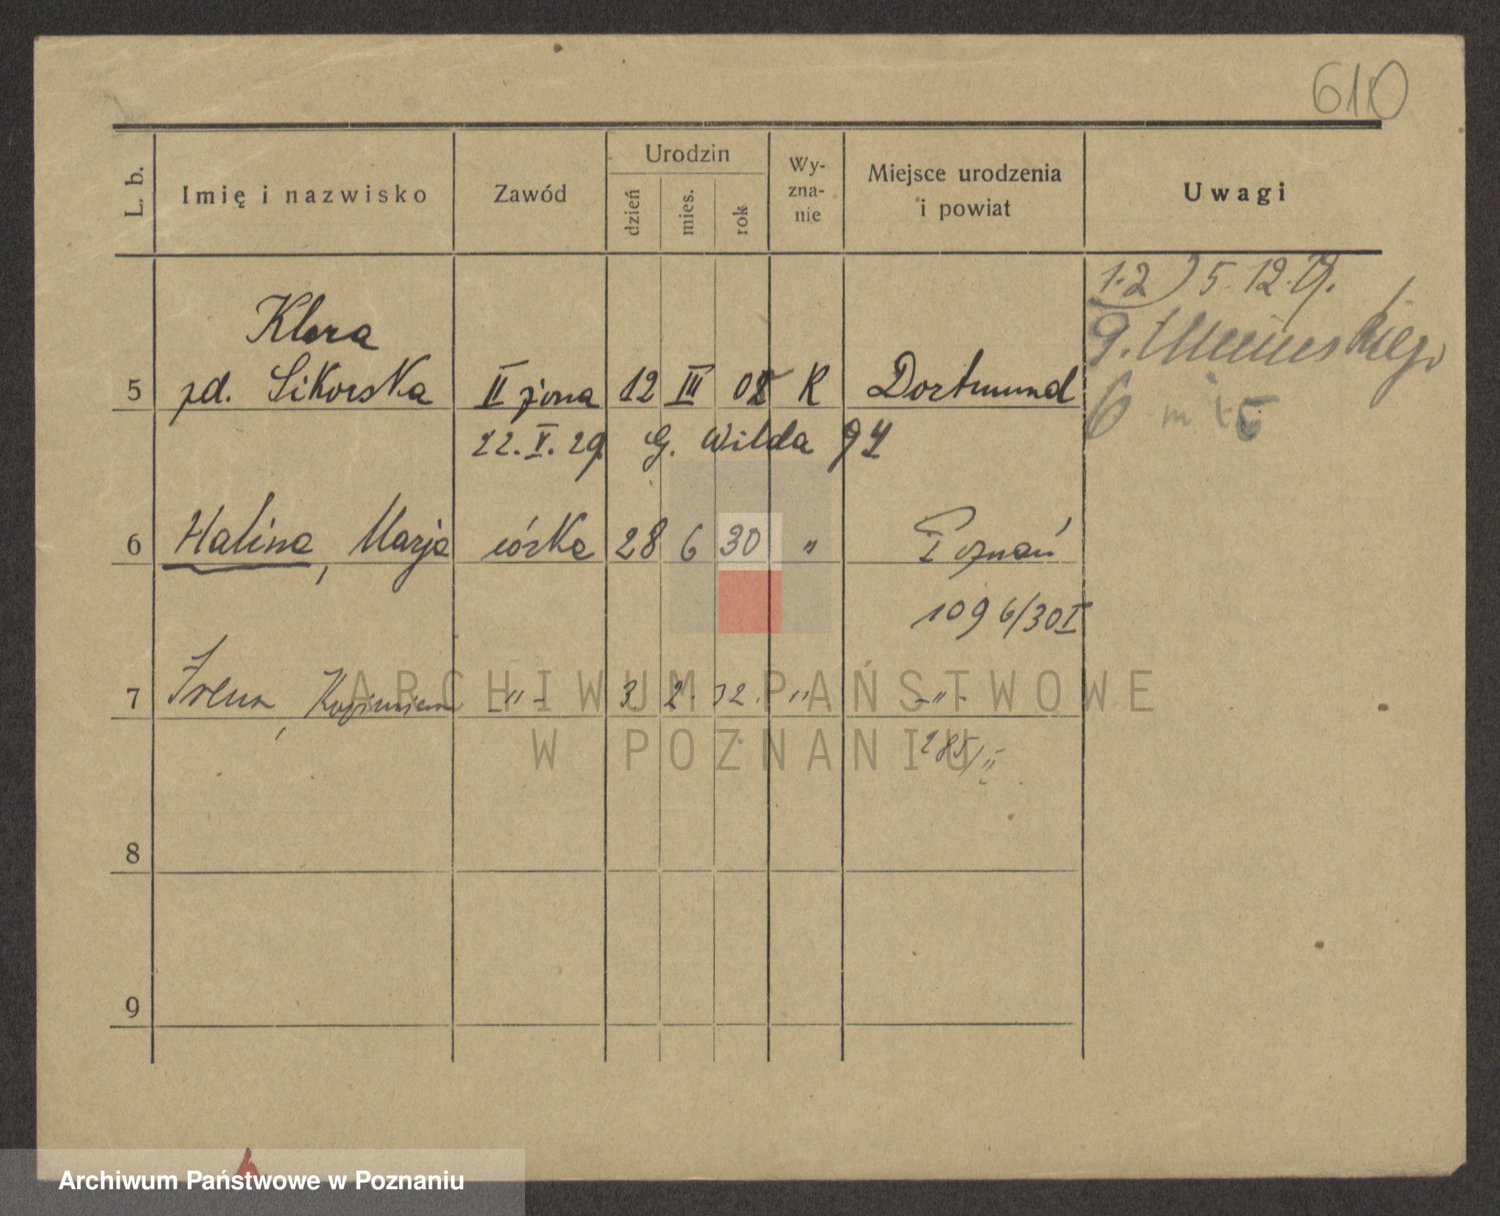 610
L. b.
Imię i nazwisko
Zawód
Urodzin
dzień
mies.
rok
Wy-
zna-
nie
Miejsce urodzenia
i powiat
Uwagi
1.2) 5.12.
Klara
5 zd. Sikorska II żona 12 III 08 R Dortmund
6 m 15
22.V.29 G. Wilda 94
6 Halina, Marja córka 28 6 30 " Poznań
1096/30 I
7 Irena, Kazimiera -"- 3. 2. 32. " -"-
285/II
8
9
ARCHIWUM PAŃSTWOWE
W POZNANIU
Archiwum Państwowe w Poznaniu